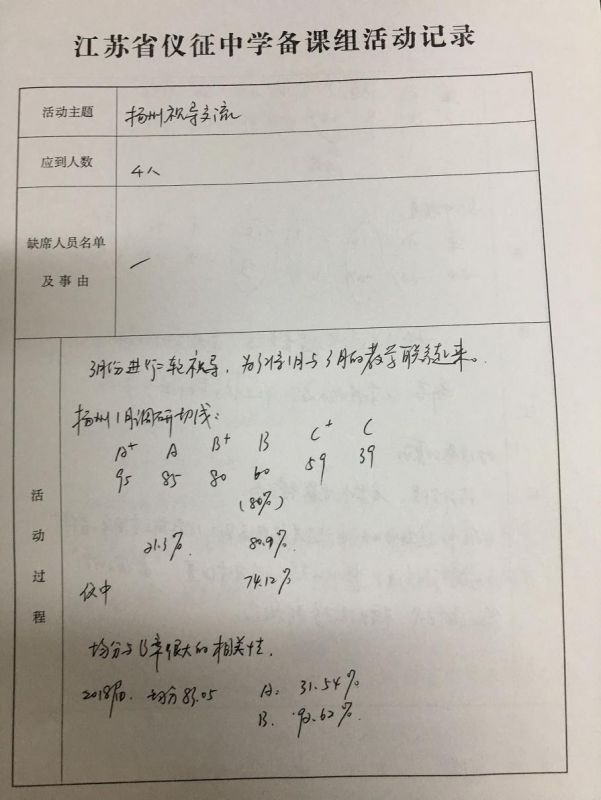 江苏省仪征中学备课组活动记录
活动主题 扬州视导交流
应到人数 4人
缺席人员名单
及事由 /
活动过程
3月份进行二轮视导,为了将1月与3月的教学联系起来。
扬州1月调研切线:
A+ A B+ B C+ C
95 85 80 60 59 39
(80%)
21.3% 80.9%
仪中 74.12%
均分与B率很大的相关性.
2018届. 均分83.05 A. 31.54%
B. 92.62%